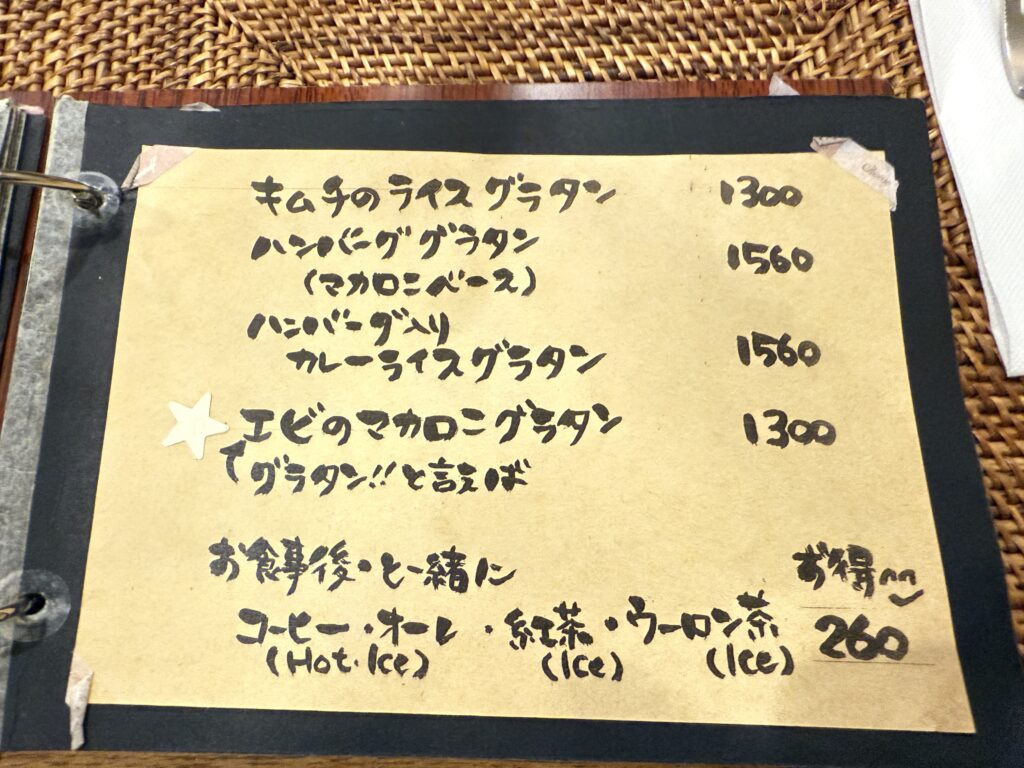 キムチのライスグラタン 1300
ハンバーググラタン 1560
(マカロニベース)
ハンバーグ入り
カレーライスグラタン 1560
エビのマカロニグラタン 1300
グラタン!!と言えば
お食事後・と一緒に お得
コーヒー・オーレ・紅茶・ウーロン茶 260
(Hot・Ice) (Ice) (Ice)